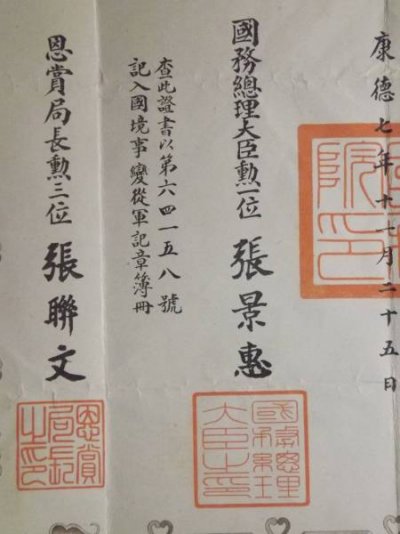 康德七年十一月二十五日
國務總理大臣勳一位 張景惠
查此證書以第六四一五八號
記入國境事變從軍記章簿冊
恩賞局長勳三位 張聯文
院印
國務總理大臣之印
恩賞局長之印